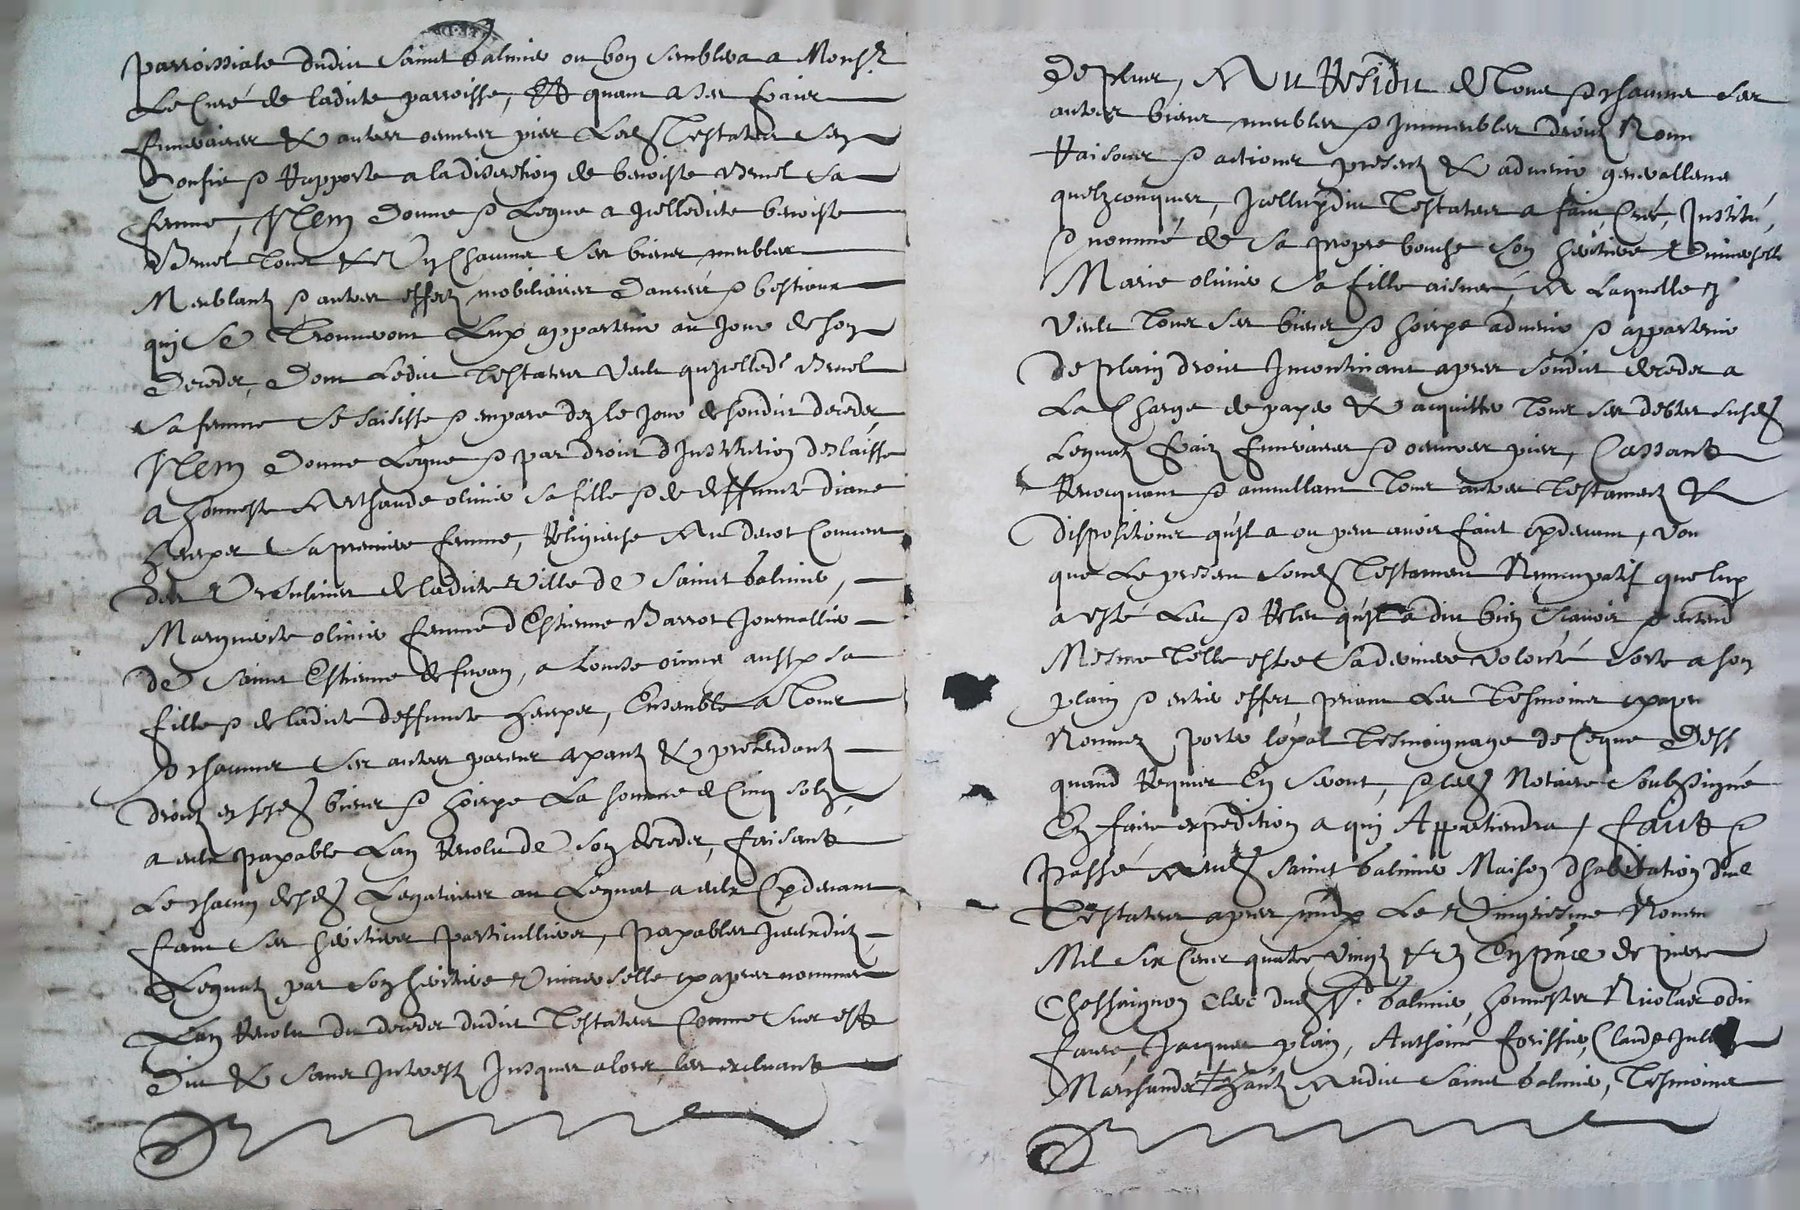 parroissiale dudict Sainct Galmier ou bon semblera a Monsr
Le Curé de ladicte parroisse, Et quant a ses fraicz
funeraires & autres oeuvres pies Led Testateur sen
Confie & Rapporte a la discretion de benoiste Bruel sa
femme, Item donne & Legue a Icelledicte benoiste
Bruel tous & Un Chacuns ses biens meubles
Meublantz & autres effectz mobiliaires danrées & bestiaux
qui se Trouveront Luy appartenir au Jour de son
decedz, dont Ledict Testateur Veult qu'Icelled Bruel
sa femme se saisisse & empare dez le Jour de sondict decedz,
Item donne Legue & par droict d'Institution deslaisse
a honneste Anthande olivier sa fille & de deffuncte diane
sa premiere femme, Religieuse Au devot Convent
des Ursulines de ladicte Ville de Sainct Galmier,
Marguerite olivier femme d'Estienne Barrot Journallier
de Sainct Estienne de furan, a Louise olivier aussy sa
fille & de ladicte deffuncte, Ensemble a Tous
& chacuns ses autres parens ayantz & pretendantz
droictz en sesd biens & hoirye La somme de Cinq solz,
a eulx payable Lan Revolu de son decedz, faisant
Le chacun desd Legataires au Legnat a eulx Cydevant
faict ses heritiers particulliers, payables Iceulxdictz
Legnatz par son heritiere Universelle cy apres nommée
Lan Revolu du decedz dudict Testateur Comme sus est
dict & sans Interestz Jusques alors, les excluant
de plus, Au Residu de Tous & chacuns ses
autres biens meubles & Immeubles droictz Noms
Raisons & actions presentz & advenir generallement
quelzconques, Icelluydict Testateur a faict, Creé, Institué,
& nommé de sa propre bouche son heritiere Universelle
Marie olivier sa fille aisnée, A Laquelle Il
Veult tous ses biens & hoirye advenir & appartenir
de plain droict Incontinant apres sondict decedz a
La Charge de payer & acquitter tous ses debtes susd
Legnatz fraiz funeraires & oeuvres pies, Cassant
Revocquant & annullant tous autres Testamentz &
dispositions qu'Il a ou peut avoir faict cydevant, Vou
que Le present sond Testament Nuncupatif que luy
a esté Leu & Releu qu'Il a dict bien scavoir & entend
Mesme telle estre sa derniere volonté sorte a son
plain & entier effect priant Les tesmoins cyapres
Nommez porter loyal tesmoignage de Ceque dess
quand Requis En seront, & led Notaire Soubzsigné
En faire expedition a qui Appartiendra, faict &
passé Aud Sainct Galmier Maison d'habitation dud
Testateur apres midy Le Vingtiesme Novem
Mil Six Cens quatre vingtz & Un En pnce de pierre
Chassaignon Clerc dud St Galmier, honnestes Nicolas odin
faure, Jacques plain, Anthoine forissier, Claude
Marchands hantz Audict Sainct Galmier, Tesmoins